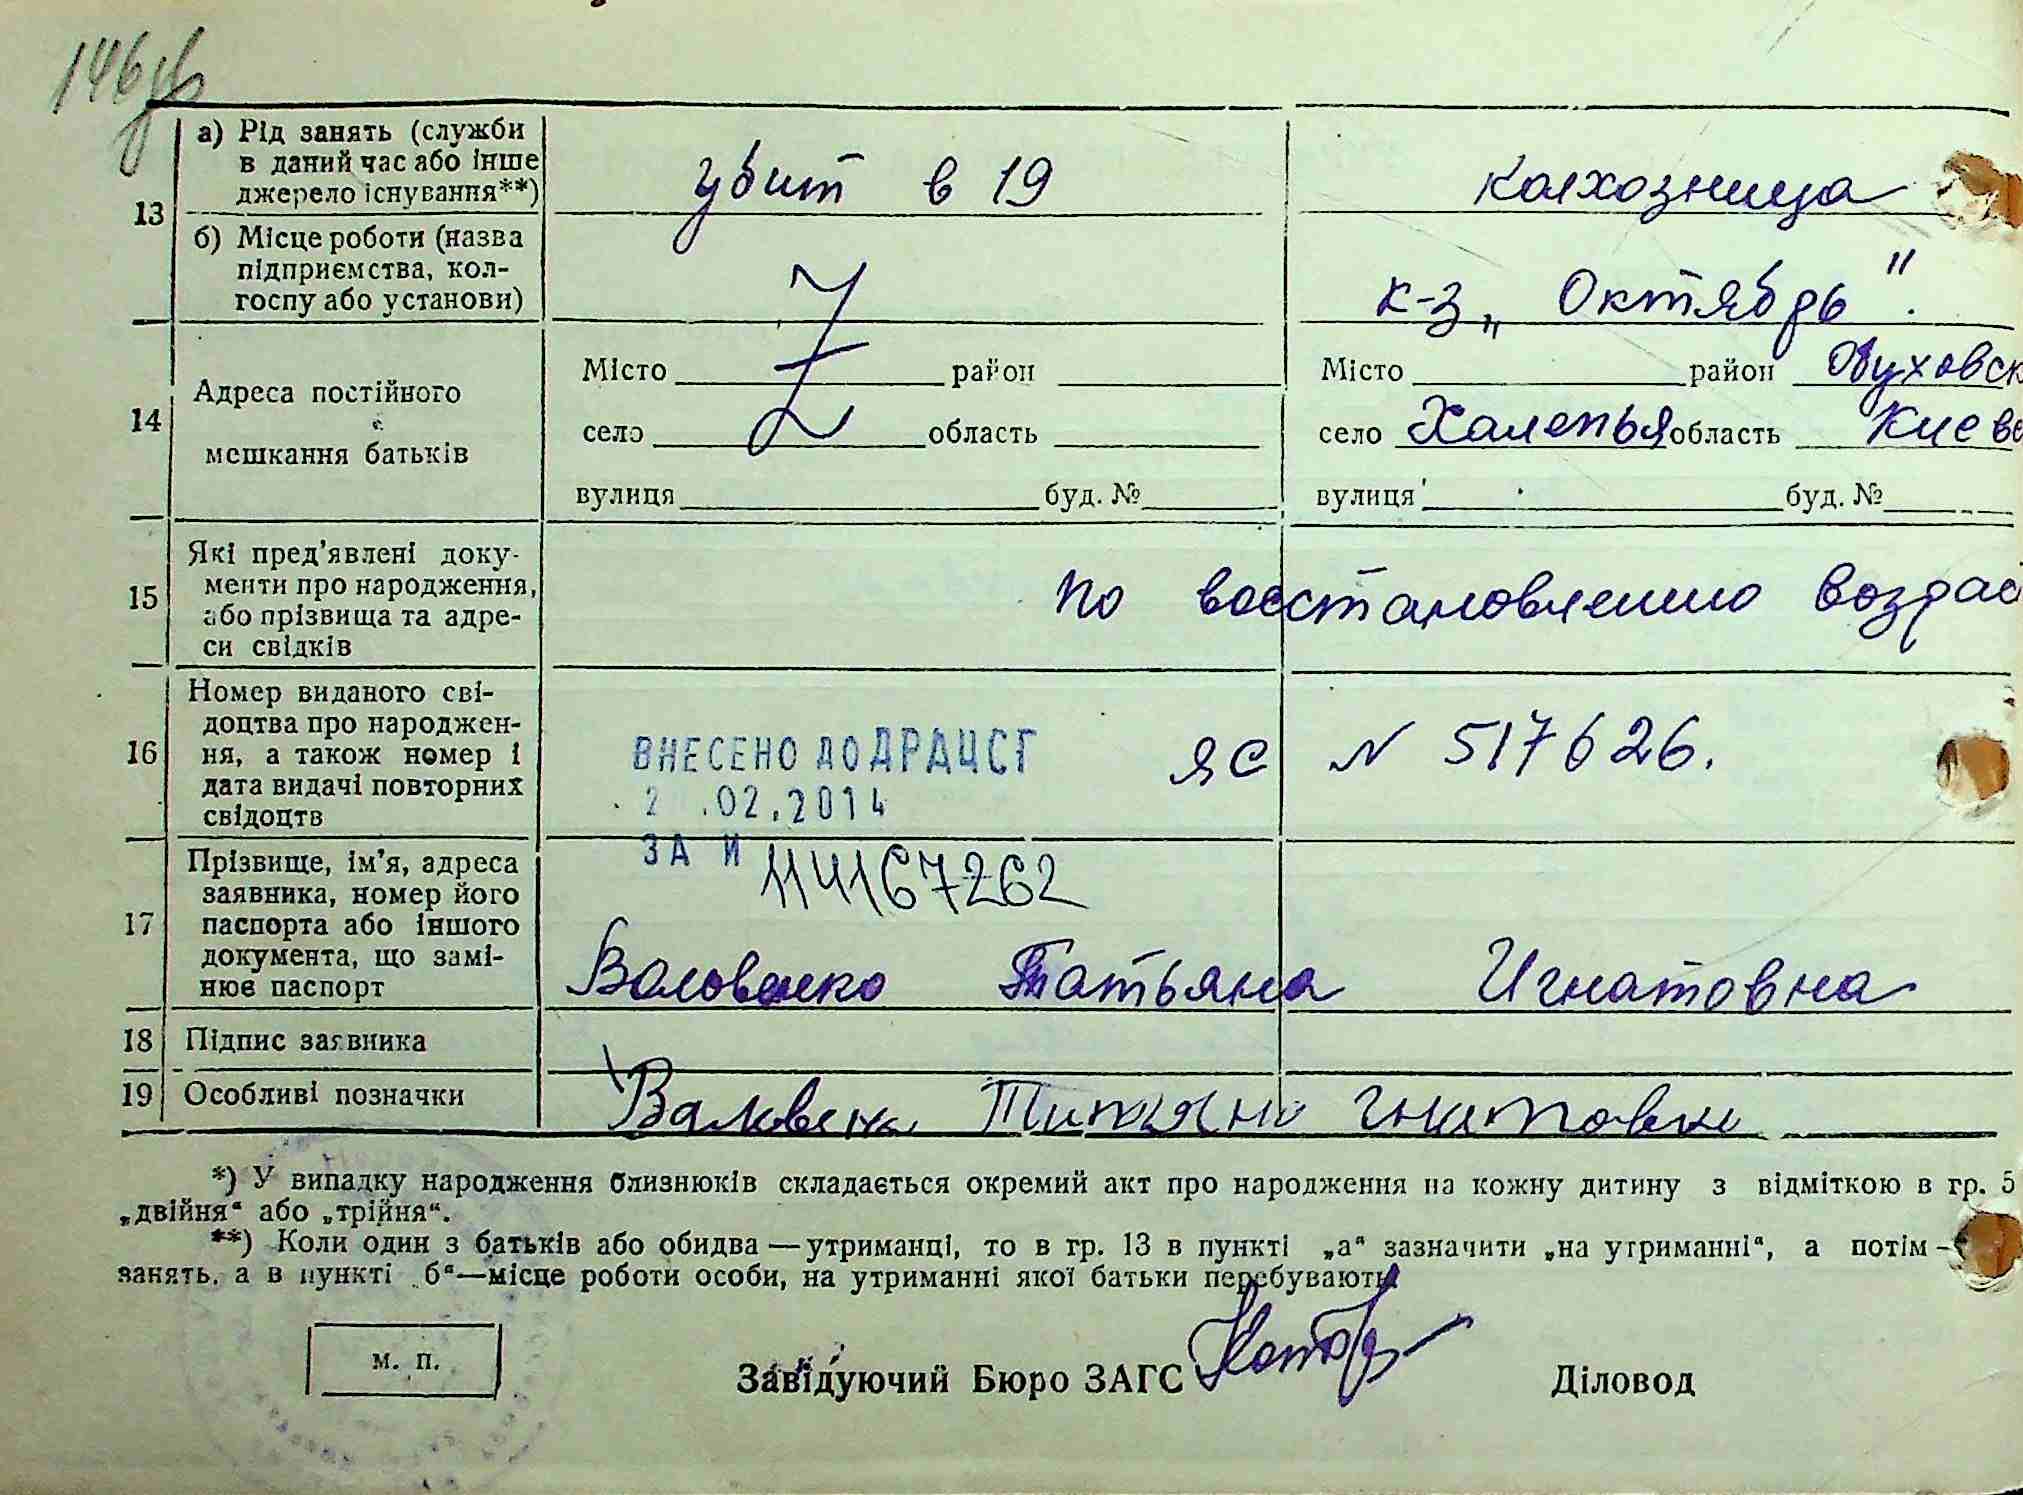 146
13
а) Рід занять (служби
в даний час або інше
джерело існування**)
убит в 19
колхозница
б) Місце роботи (назва
підприємства, кол-
госпу або установи)
к-з „Октябрь".
14
Адреса постійного
мешкання батьків
Місто район
село область
вулиця буд. №
Місто район
село Халепья область Киевс
вулиця буд. №
15
Які пред'явлені доку-
менти про народження,
або прізвища та адре-
си свідків
по восстановлению возрас
16
Номер виданого сві-
доцтва про народжен-
ня, а також номер і
дата видачі повторних
свідоцтв
ВНЕСЕНО ДО ДРАЦСГ
2 .02.2014
ЗА №
114167262
ЯС № 517626.
17
Прізвище, ім'я, адреса
заявника, номер його
паспорта або іншого
документа, що замі-
нює паспорт
Воловенко Татьяна Игнатовна
18 Підпис заявника
19 Особливі позначки
*) У випадку народження близнюків складається окремий акт про народження на кожну дитину з відміткою в гр. 5
„двійня" або „трійня".
**) Коли один з батьків або обидва — утриманці, то в гр. 13 в пункті „а" зазначити „на утриманні", а потім —
занять, а в пункті „б"—місце роботи особи, на утриманні якої батьки перебувають.
м. п.
Завідуючий Бюро ЗАГС
Діловод